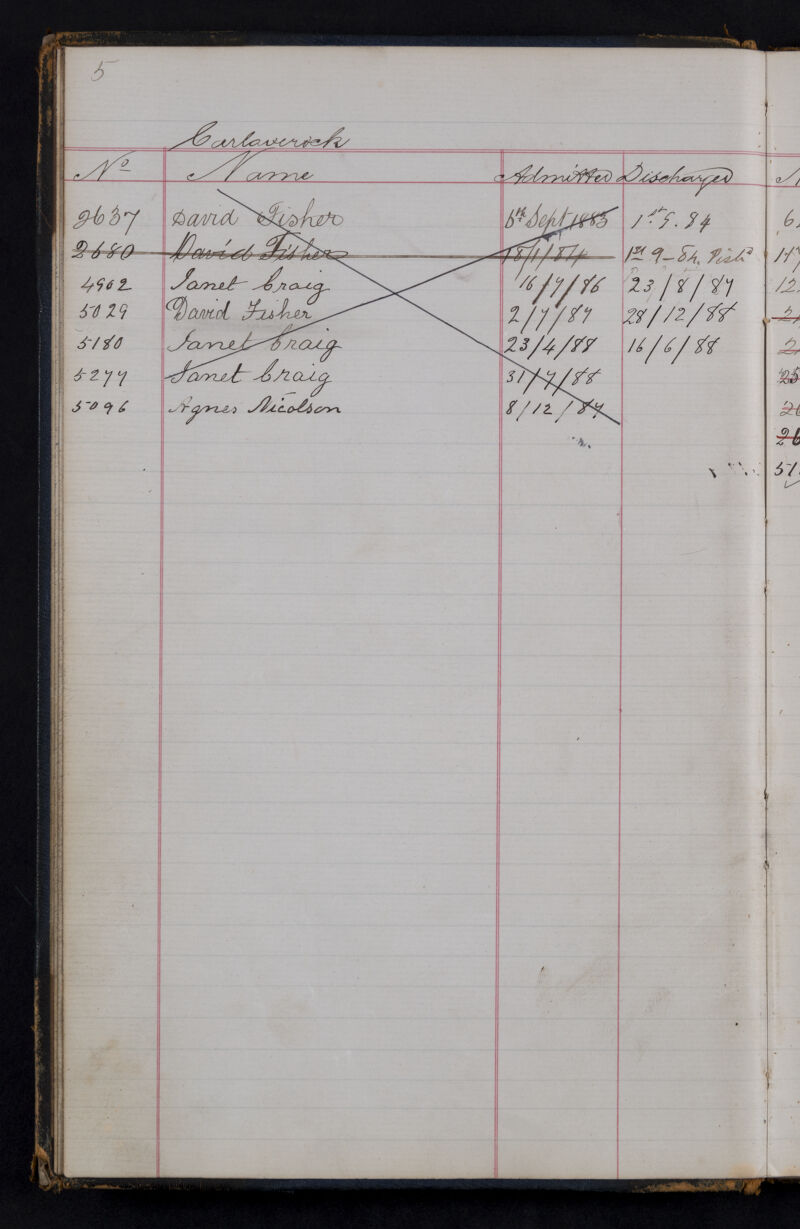 5
Carlaverock
No Name Admitted Discharged
2637 David Fisher 5th Sept 1883 1st 9. 84
2680 David Fisher 18/1/84 1st 9-84
4962 Janet Craig 16/7/86 23/8/87
5029 David Fisher 2/7/87 28/12/88
5180 Janet Craig 23/4/88 16/6/88
5277 Janet Craig 31/7/88
5096 Agnes Nicolson 8/12/87